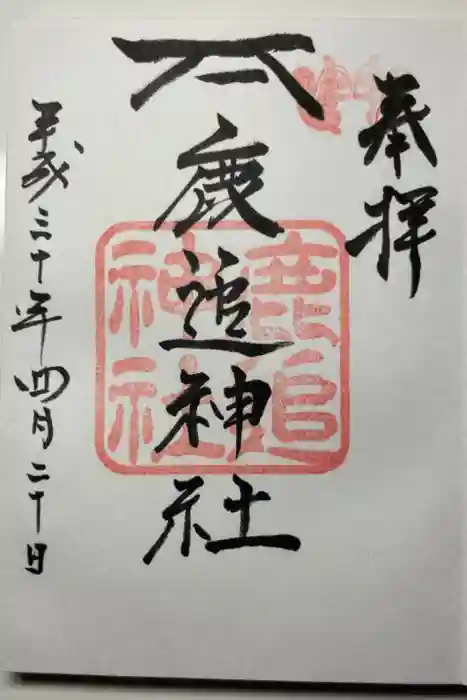 奉拝
鹿追神社
鹿追
神社
平成三十年四月二十日